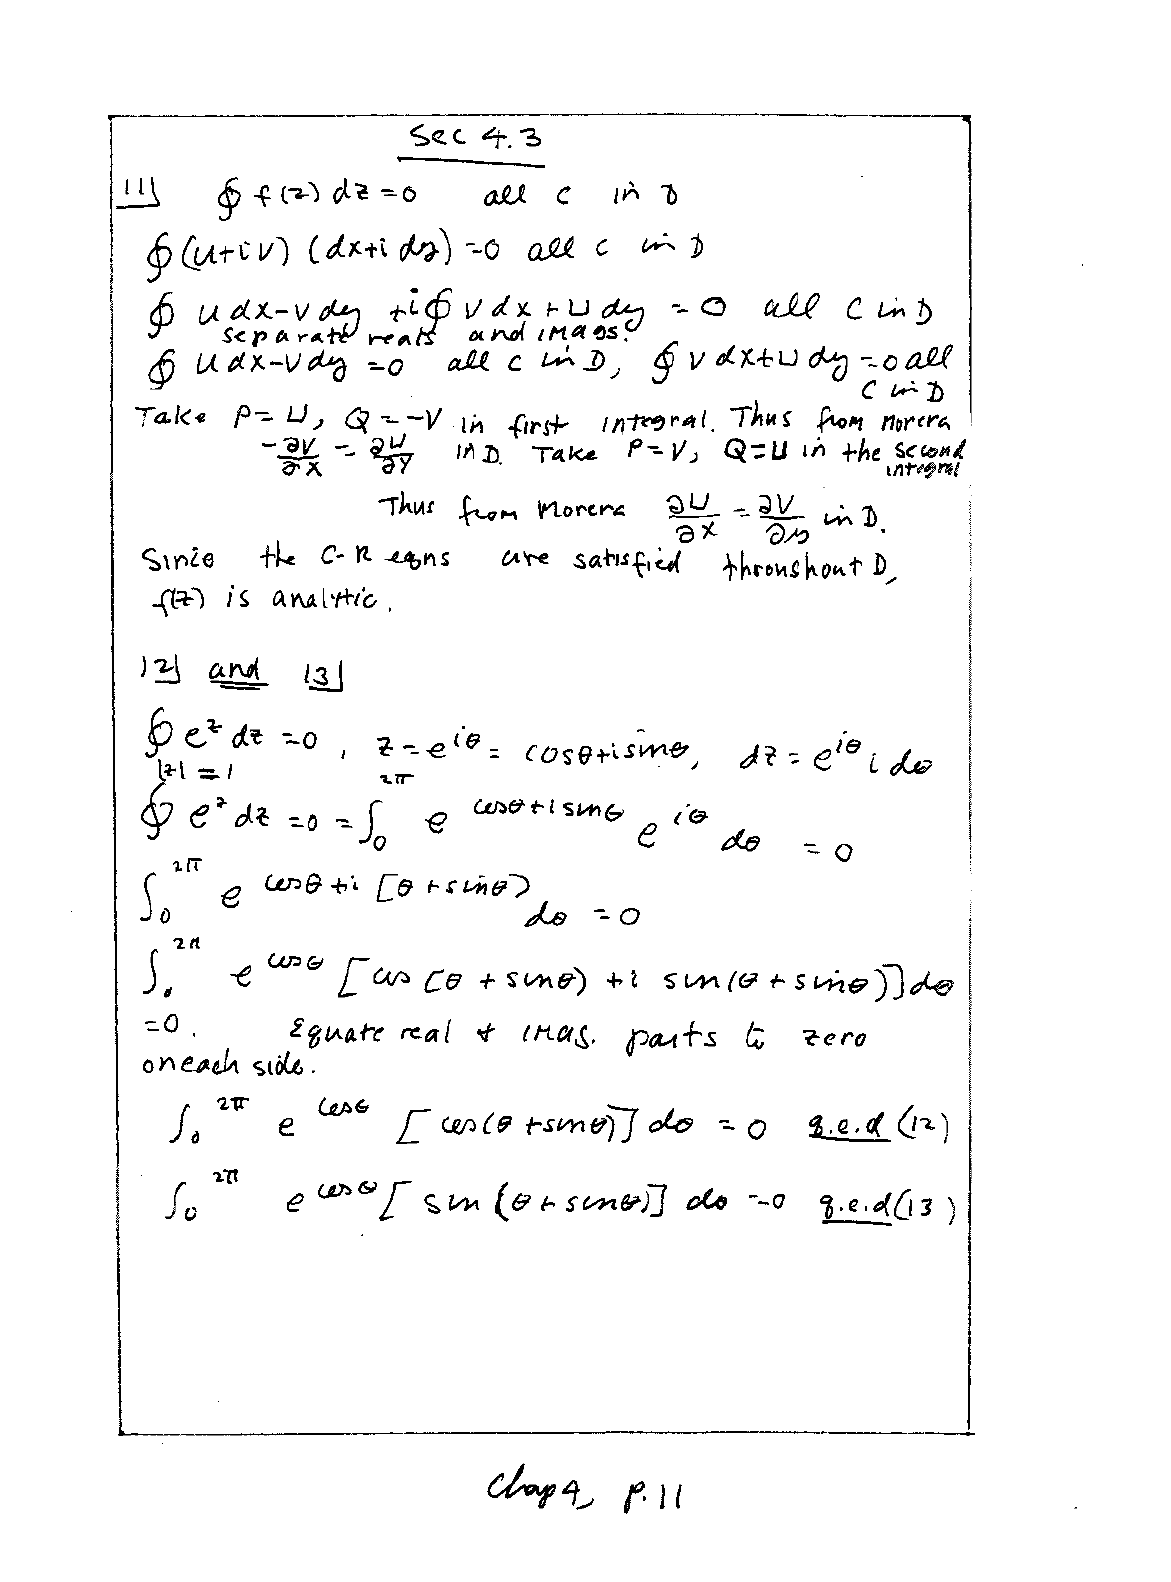 Sec 4.3
11] ∮ f(z) dz = 0 all C in D
∮ (U+iV) (dx+i dy) = 0 all C in D
∮ U dx - V dy + i ∮ V dx + U dy = 0 all C in D
separate reals and imags.
∮ U dx - V dy = 0 all C in D, ∮ V dx + U dy = 0 all
C in D
Take P = U, Q = -V in first integral. Thus from Morera
-∂V/∂x = ∂U/∂y in D. Take P = V, Q = U in the second
integral
Thus from Morera ∂U/∂x = ∂V/∂y in D.
Since the C-R eqns are satisfied throughout D,
f(z) is analytic.
12] and 13]
∮ e^z dz = 0, z = e^{iθ} = cosθ + i sinθ, dz = e^{iθ} i dθ
|z| = 1
∮ e^z dz = 0 = ∫_0^{2π} e^{cosθ + i sinθ} e^{iθ} dθ = 0
∫_0^{2π} e^{cosθ + i [θ + sinθ)} dθ = 0
∫_0^{2π} e^{cosθ} [cos(θ + sinθ) + i sin(θ + sinθ)] dθ
= 0. Equate real + imag. parts to zero
on each side.
∫_0^{2π} e^{cosθ} [cos(θ + sinθ)] dθ = 0 q.e.d (12)
∫_0^{2π} e^{cosθ} [sin(θ + sinθ)] dθ = 0 q.e.d (13)
Chap 4, p. 11